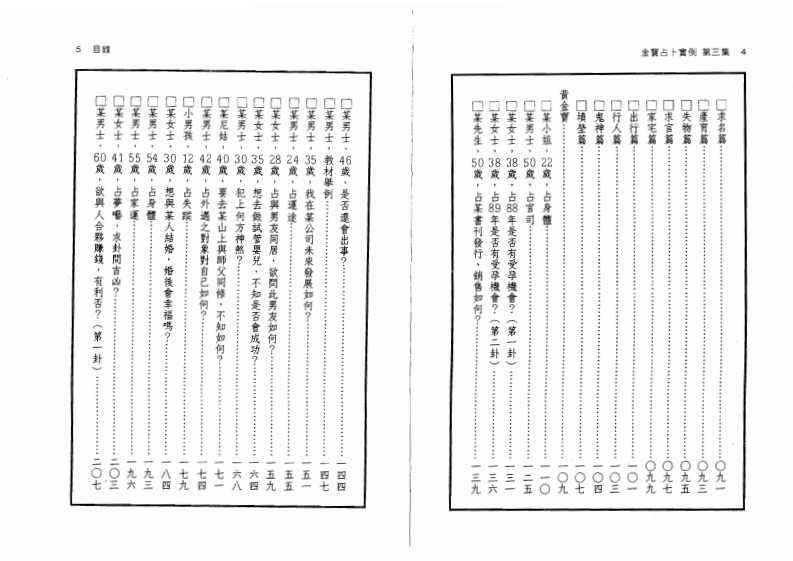 金寶占卜實例 第三集 4
□求名篇……〇九一
□產育篇……〇九三
□失物篇……〇九五
□求官篇……〇九七
□家宅篇……〇九九
□出行篇……一〇一
□行人篇……一〇三
□鬼神篇……一〇四
□墳塋篇……一〇七
黃金寶……一〇九
□某小姐,22歲,占身體……一一〇
□某男士,50歲,占官司……一二五
□某女士,38歲,占88年是否有受孕機會?(第一卦)……一三一
□某女士,38歲,占89年是否有受孕機會?(第二卦)……一三六
□某先生,50歲,占某書刊發行、銷售如何?……一三九
5 目錄
□某男士,46歲,是否還會出事?……一四四
□某男士,教材舉例……一四七
□某男士,35歲,我在某公司未來發展如何?……一五一
□某男士,24歲,占運途……一五五
□某女士,28歲,占與男友同居,欲問此男友如何?……一五九
□某女士,35歲,想去做試管嬰兒,不知是否會成功?……一六四
□某男士,30歲,犯上何方神煞?……一六八
□某尼姑,40歲,要去某山上與師父同修,不知如何?……一七一
□某男士,42歲,占外遇之對象對自己如何?……一七四
□小男孩,12歲,占失蹤……一七九
□某女士,30歲,想與某人結婚,婚後會幸福嗎?……一八四
□某男士,54歲,占身體……一九三
□某男士,55歲,占家運……一九六
□某女士,41歲,占夢囈,求卦問吉凶?……二〇三
□某男士,60歲,欲與人合夥賺錢,有利否?(第一卦)……二〇七